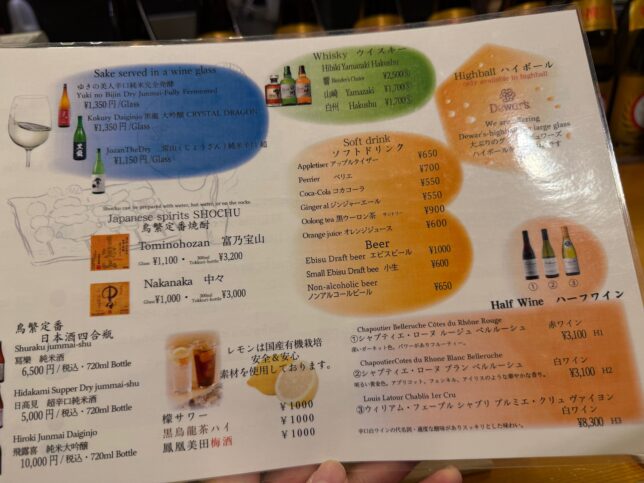 Sake served in a wine glass
ゆきの美人辛口純米完全発酵
Yuki no Bijin Dry Junmai-Fully Fermented
¥1,350 /Glass
Kokury Daiginjo 黒龍 大吟醸 CRYSTAL DRAGON
¥1,350/Glass
JozanTheDry
¥1,150/Glass
Whisky ウイスキー
Hibiki Yamazaki Hakushu
Blender's Choice ¥2,500
山崎 Yamazaki ¥1,700
白州 Hakushu ¥1,700
Highball ハイボール
only available in highball
Dewar's
We are offering
Dewar's-highball large glass
Soft drink
ソフトドリンク
Appletiser アップルタイザー ¥650
Perrier ペリエ ¥700
Coca-Cola コカコーラ ¥550
Ginger al ジンジャーエール ¥550
Oolong tea 黒ウーロン茶 サントリー ¥900
Orange juice オレンジジュース ¥600
Beer
Ebisu Draft beer エビスビール ¥1000
Small Ebisu Draft bee 小生 ¥600
Non-alcoholic beer
ノンアルコールビール ¥650
Shochu can be prepared with water, hot water, or on the rocks.
Japanese spirits SHOCHU
鳥繁定番焼酎
Tominohozan 富乃宝山
Glass ¥1,100 ・ 300ml Tokkuri-bottle ¥3,200
Nakanaka 中々
Glass ¥1,000 ・ 300ml Tokkuri-bottle ¥3,000
鳥繁定番
日本酒四合瓶
Shuraku jummai-shu
純米酒
6,500 円 / 税込・720ml Bottle
Hidakami Supper Dry jummai-shu
日高見 超辛口純米酒
5,000 円 / 税込・720ml Bottle
Hiroki Junmai Daiginjo
飛露喜 純米大吟醸
10,000 円 / 税込・720ml Bottle
レモンは国産有機栽培
安全&安心
素材を使用しております。
檬サワー ¥1000
黒烏龍茶ハイ ¥1000
鳳凰美田梅酒 ¥1000
① ② ③
Half Wine ハーフワイン
Chapoutier Belleruche Côtes du Rhône Rouge
①シャプティエ・ローヌ ルージュ ベルルーシュ 赤ワイン
深いガーネット色。パワーがありフルーティー。 ¥3,100 H1
ChapoutierCotes du Rhone Blanc Belleruche
②シャプティエ・ローヌ ブラン ベルルーシュ 白ワイン
明るい黄金色。アプリコット、フェンネル、アイリスのような華やかな香り。 ¥3,100 H2
Louis Latour Chablis 1er Cru
③ウィリアム・フェーブル シャブリ プルミエ・クリュ ヴァイヨン
白ワイン
辛口白ワインの代名詞・適度な酸味がありスッキリとした味わい。 ¥8,300 H3